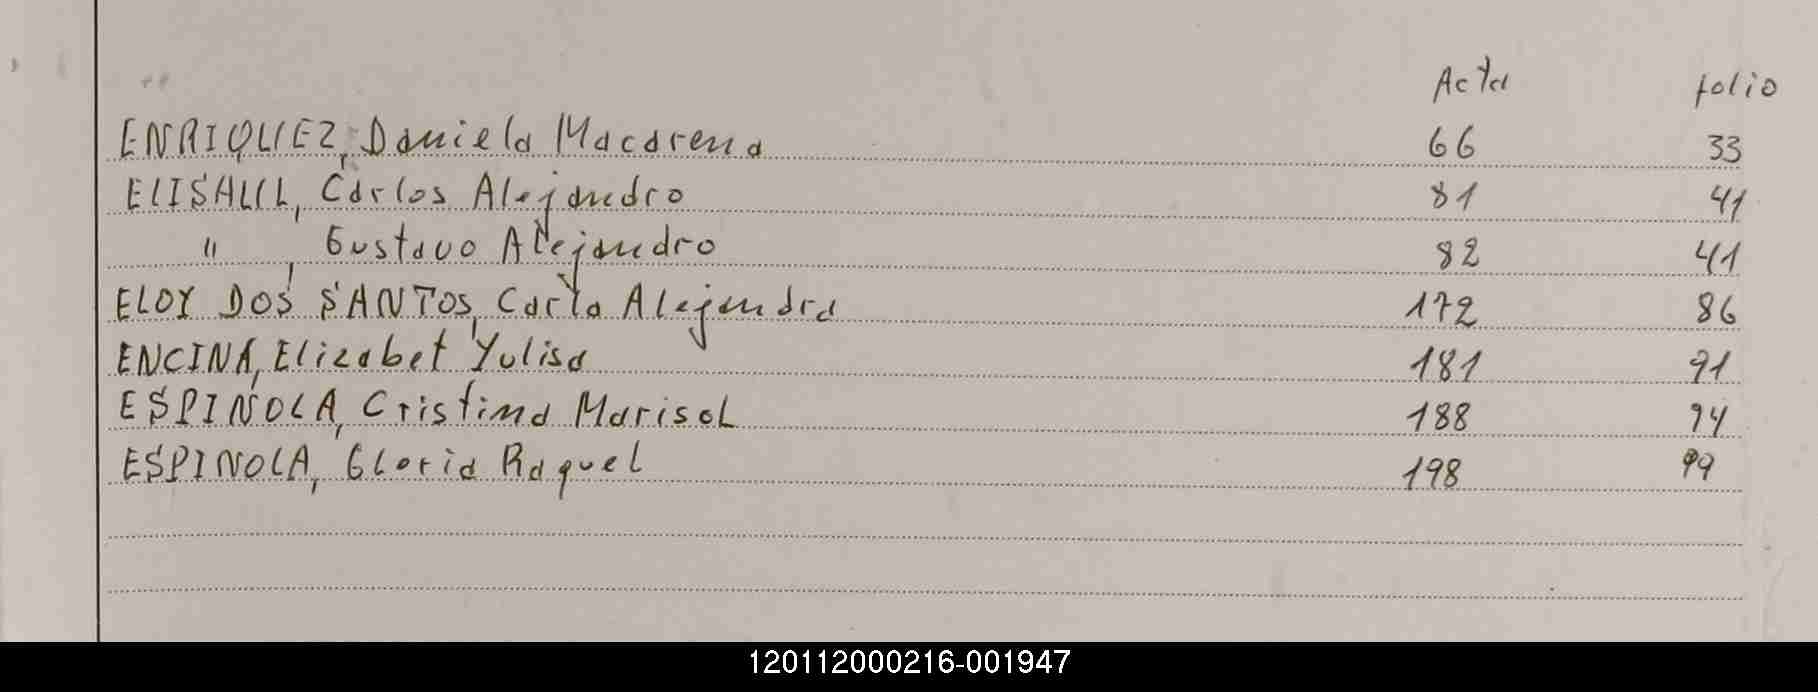 Acta folio
ENRIQUEZ, Daniela Macarena 66 33
Carlos Alejandro 81 41
" , Gustavo Alejandro 82 41
ELOY DOS SANTOS, Carla Alejandra 172 86
ENCINA, Elizabet Yulisa 181 91
ESPINOLA, Cristina Marisol 188 94
ESPINOLA, Gloria Raquel 198 99
120112000216-001947